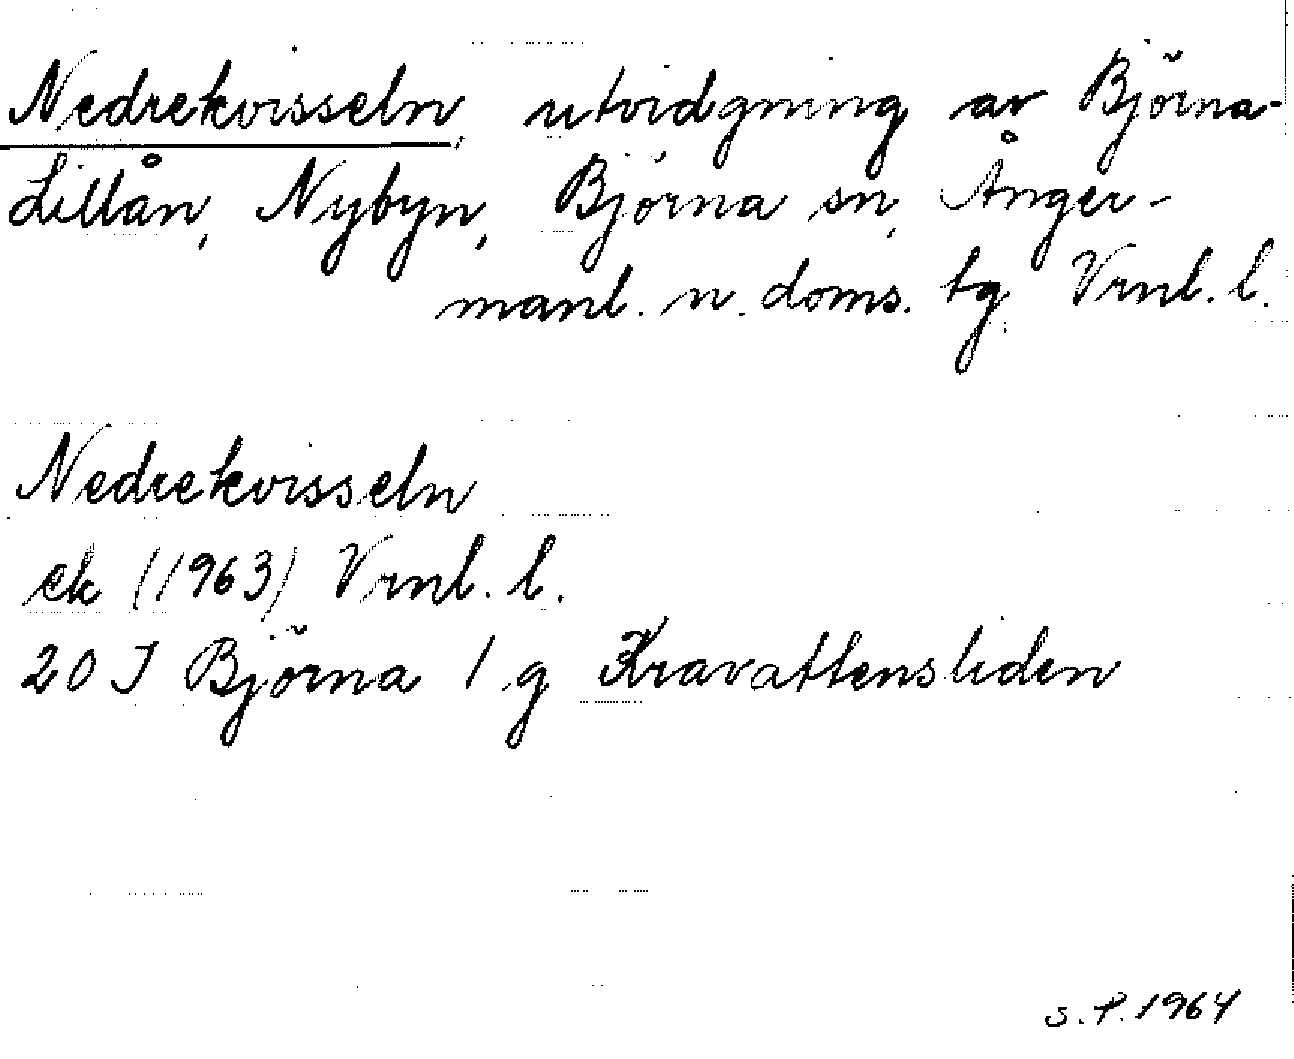 Nedrekvisseln, utvidgning av Björna-
Lillån, Nybyn, Björna sn, Ånger-
manl. n. doms. tg, Vrnl. l.
Nedrekvisseln
ek (1963) Vrnl. l.
20 J Björna 1 g Kravattensliden
S.P. 1964